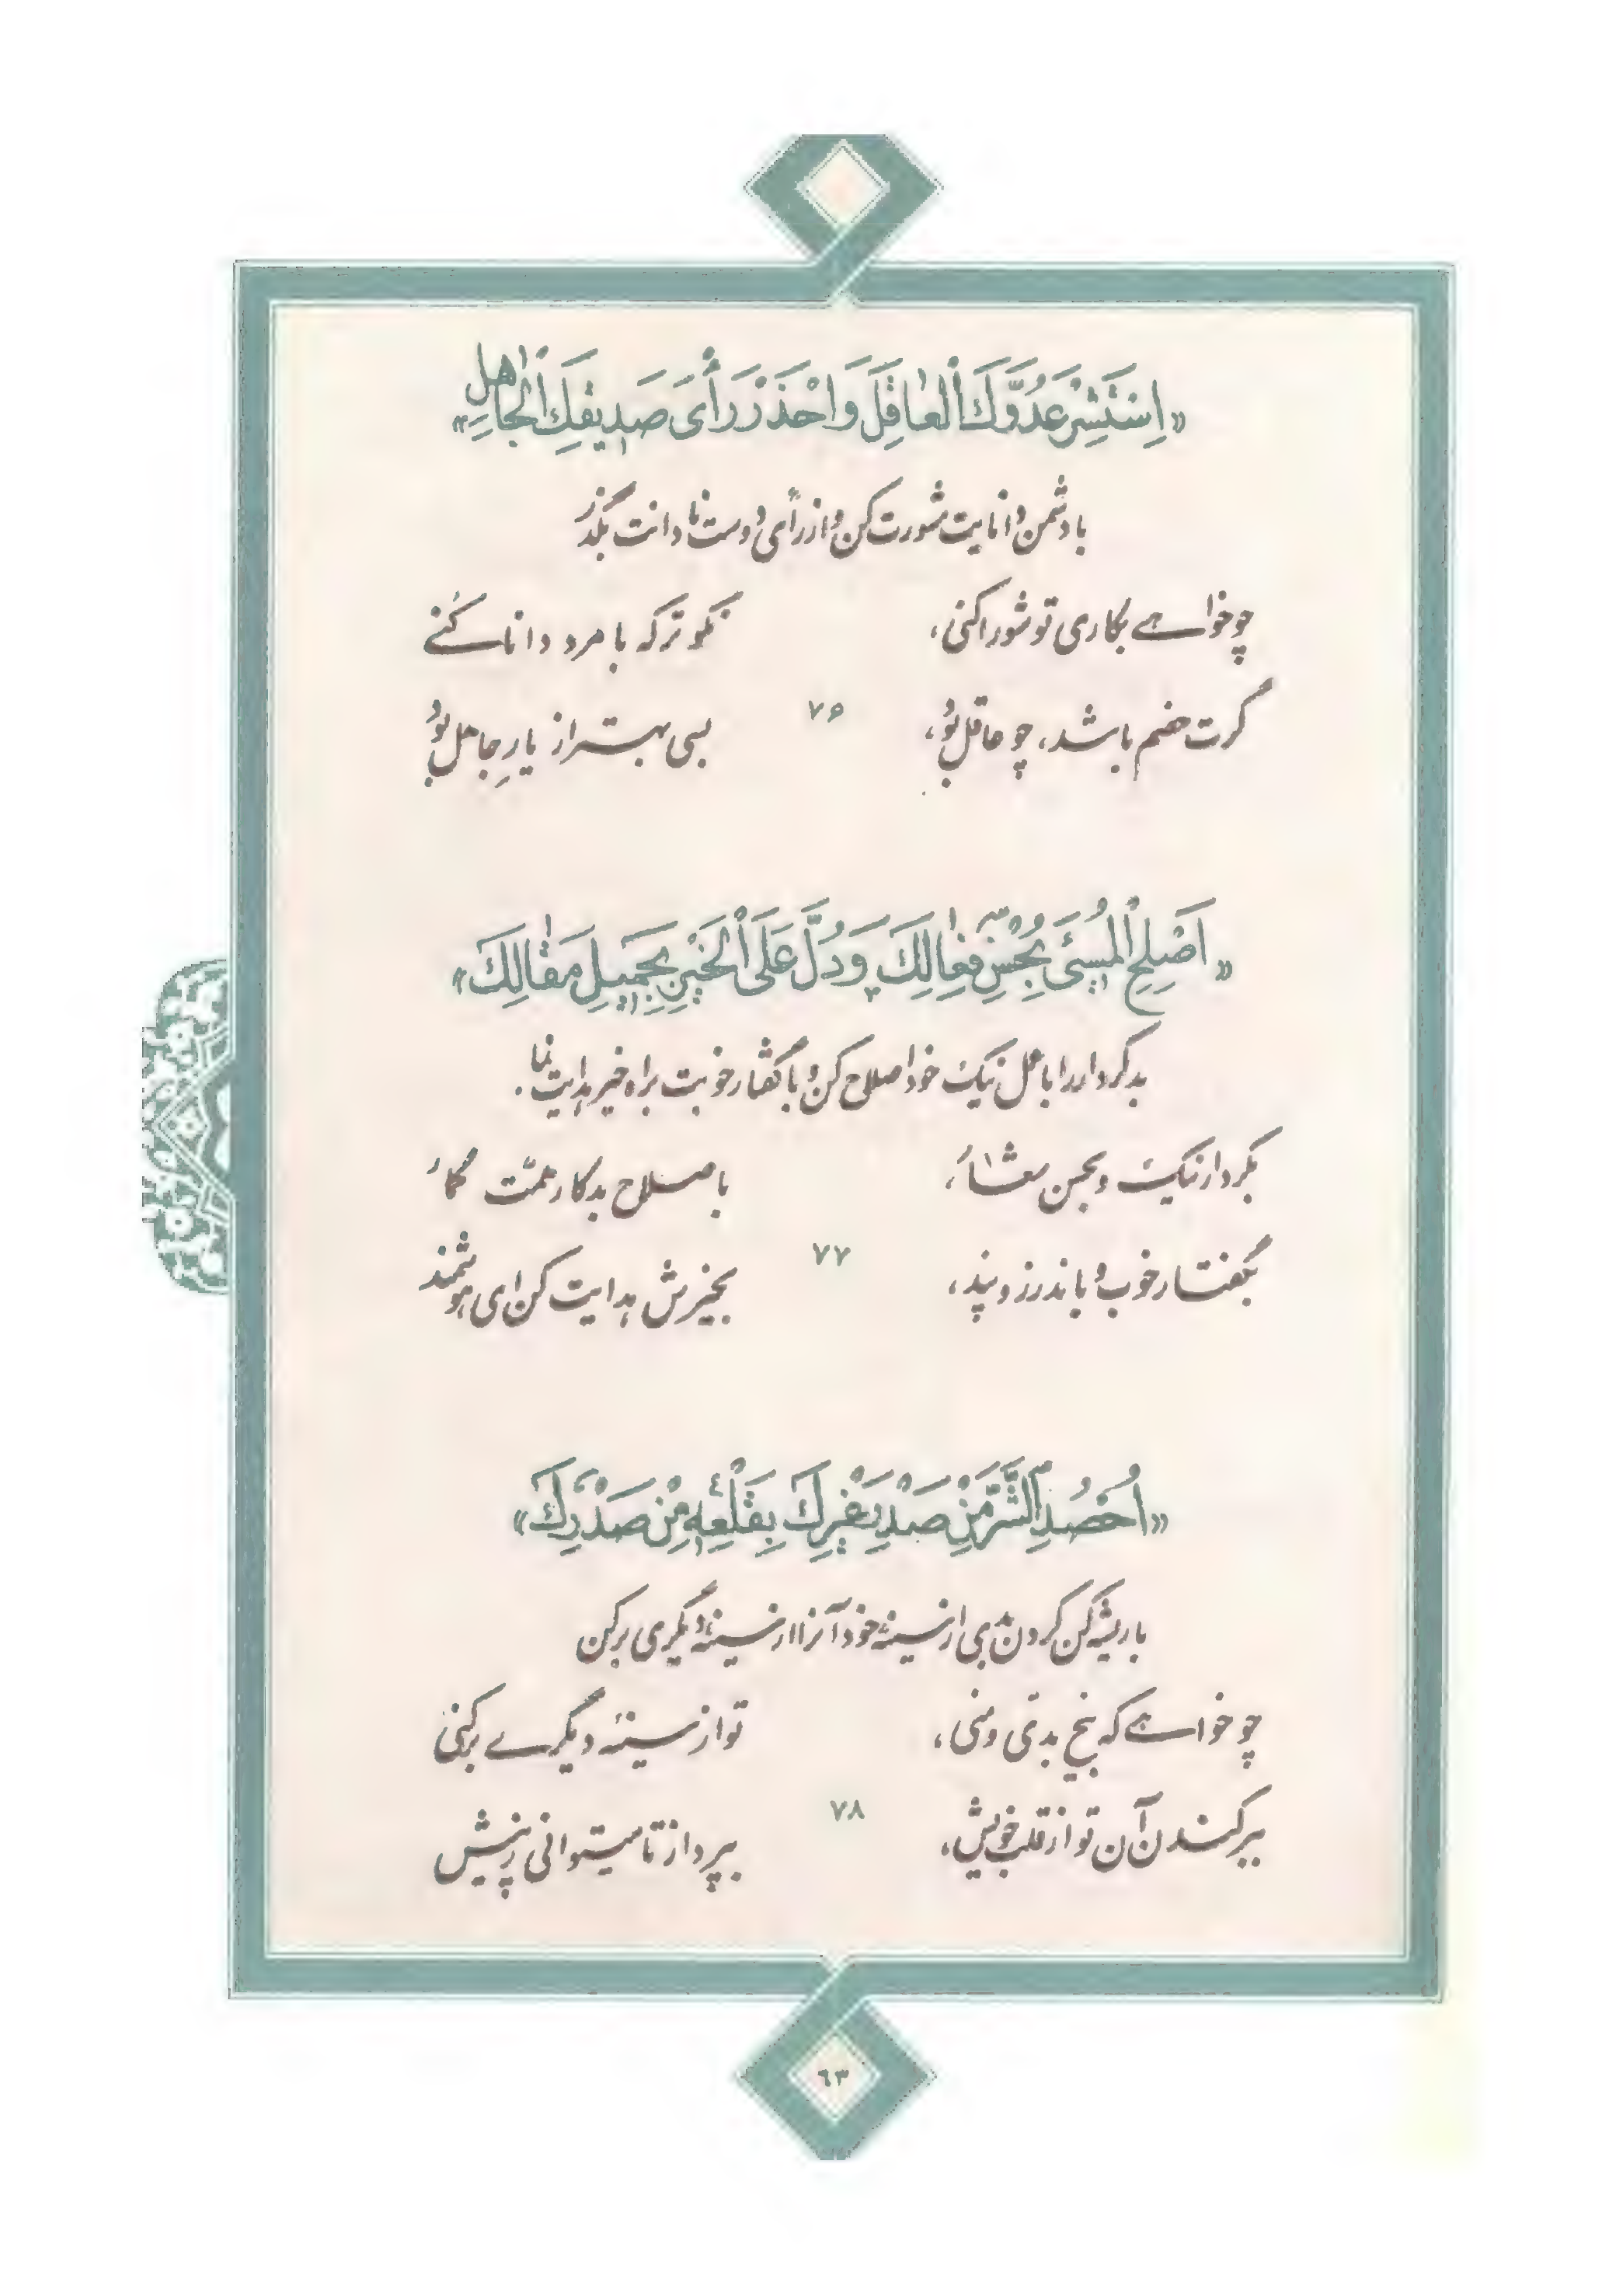 «اِسْتَشِرْ عَدُوَّكَ الْعاقِلَ وَاحْذَرْ رَأْیَ صَدیقِكَ الْجاهِلِ»
با دشمن دانایت مشورت کن و از رأی دوست نادانت بگذر
چو خواهے بکاری تو شورا کنی، نکوتر که با مرد دانا کُنے
گرت خصم باشد، چو عاقل بُوَد، بسی بهتر از یارِ جاهل بُوَد
۷۶
«اَصْلِحِ الْمُسیئَ بِحُسْنِ فِعالِكَ وَ دُلَّ عَلَی الْخَیْرِ بِجَمیلِ مَقالِكَ»
بدکردار را با عمل نیک خود اصلاح کن و با گفتار خوبت براه خیر هدایت نما.
بکردار نیک و بحسن باصلاح بدکار همّت گمار
بگفتار خوب و باندرز و پند، بخیرش هدایت کن ای هوشمند
۷۷
«اُحْصُدِ الشَّرَّ مِنْ صَدْرِ غَیْرِكَ بِقَلْعِهِ مِنْ صَدْرِكَ»
با ریشه‌کن کردن بدی از سینهٔ خود آنرا از سینهٔ دیگری برکن
چو خواهے که بیخ بدی و منی، تو از سینهٔ دیگرے برکنی
ببرکندن آن تو از قلب خویش، بپرداز تا میتوانی ز پیش
۷۸
٦٣